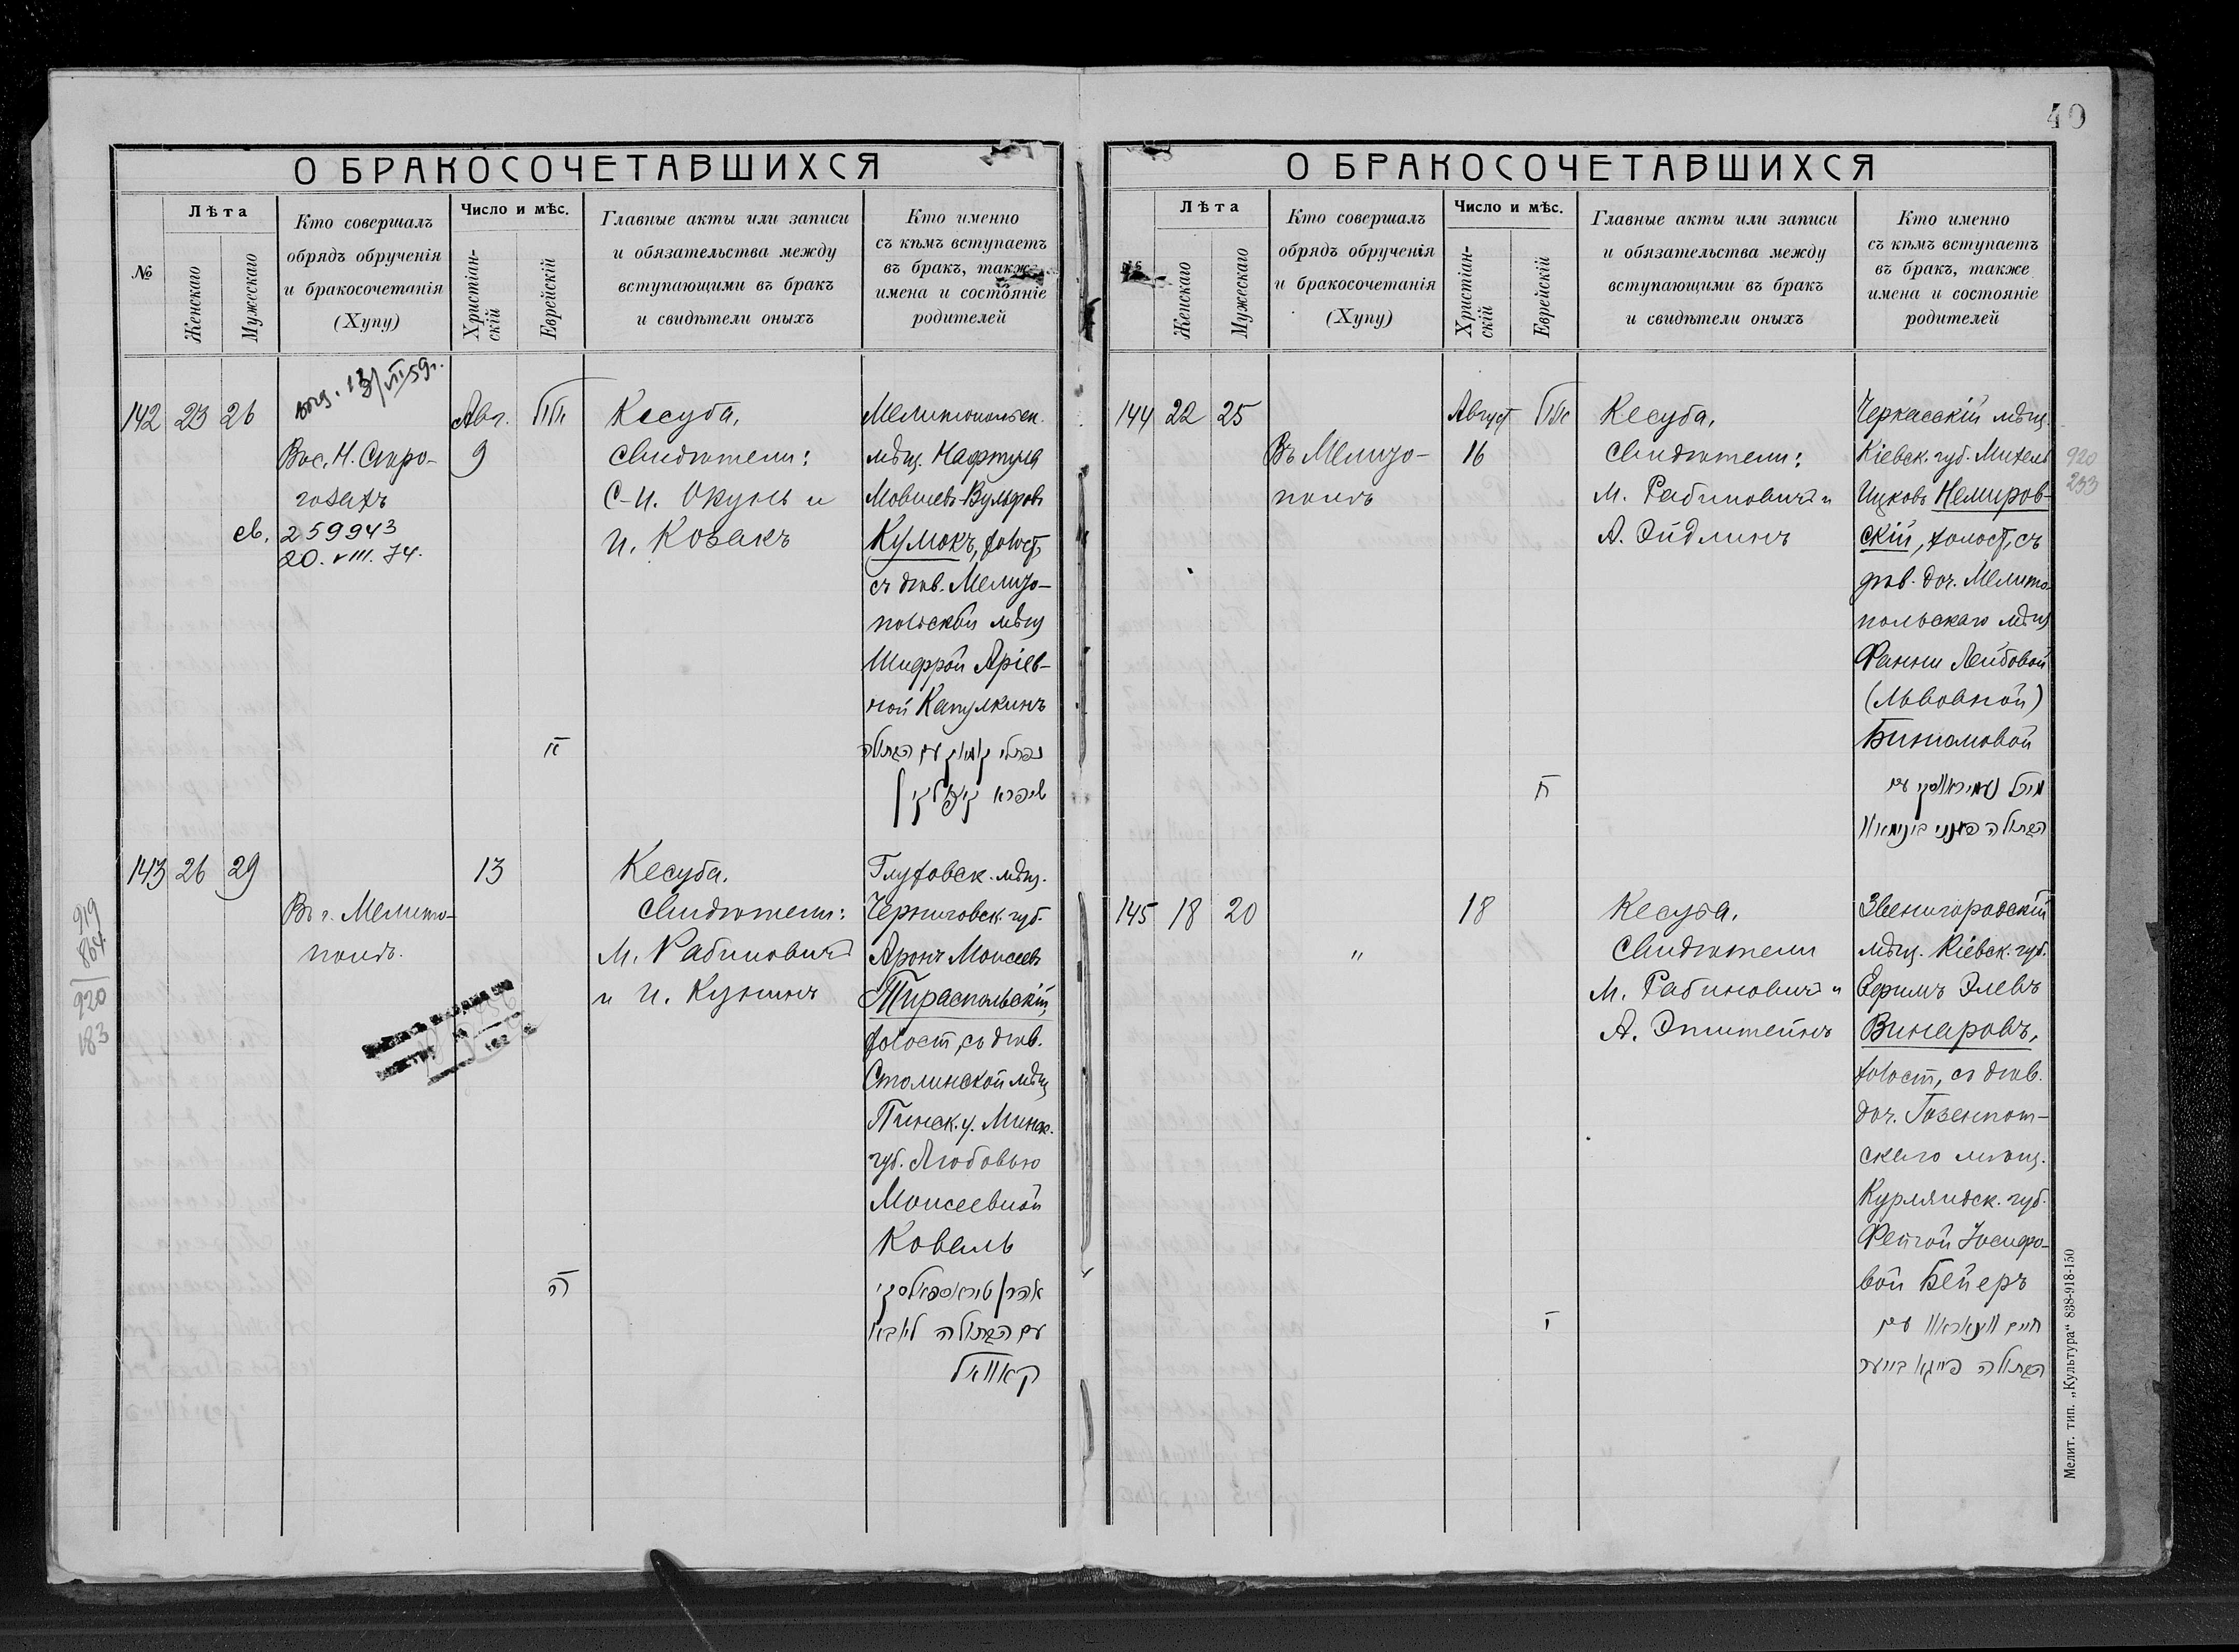 40
О БРАКОСОЧЕТАВШИХСЯ
№
Лѣта
Женскаго
Мужескаго
Кто совершалъ
обрядъ обрученія
и бракосочетанія
(Хупу)
Число и мѣс.
Христіан-
скій
Еврейскій
Главные акты или записи
и обязательства между
вступающими въ бракъ
и свидѣтели оныхъ
Кто именно
съ кѣмъ вступаетъ
въ бракъ, также
имена и состояніе
родителей
142 23 26
Вас. Н. Старо-
св. 259943
20. VIII. 74.
Авг.
9
Кесуба.
Свидѣтели:
С-И. Окунь и
И. Козакъ
Мелитопольск.
мѣщ. Нафтула
Мовшевъ-Вульфовъ
Кумокъ, холост,
съ дѣв. Мелито-
польской мѣщ
Шифрой Аріев-
ной Капулкинъ
נפתלי קומוק עם הבתולה
143 26 29
Въ г. Мелито-
полѣ.
13
Кесуба.
Свидѣтели:
М. Рабиновичъ
и И. Кунинъ
Глуховск. мѣщ.
Черниговск. губ.
Аронъ Моисеевъ
Тираспольскій,
холост, съ дѣв.
Столинской мѣщ
Пинск. у. Минск.
губ. Любовью
Моисеевной
Коваль
עם הבתולה ליובא
קאוואל
919
864
920
183
О БРАКОСОЧЕТАВШИХСЯ
Лѣта
Женскаго
Мужескаго
Кто совершалъ
обрядъ обрученія
и бракосочетанія
(Хупу)
Число и мѣс.
Христіан-
скій
Еврейскій
Главные акты или записи
и обязательства между
вступающими въ бракъ
и свидѣтели оныхъ
Кто именно
съ кѣмъ вступаетъ
въ бракъ, также
имена и состояніе
родителей
144 22 25
Въ Мелито-
полѣ
Август
16
Кесуба.
Свидѣтели:
М. Рабиновичъ и
А. Эйдлинъ
Черкасскій мѣщ.
Кіевск. губ. Михель
Ицковъ Немиров-
скій, холост, съ
дѣв. доч. Мелито-
польскаго мѣщ
Фанни Лейбовой
(Львовной)
Биномовой
920
253
145 18 20
"
18
Кесуба.
Свидѣтели
М. Рабиновичъ и
А. Эпштейнъ
Звенигородскій
мѣщ. Кіевск. губ.
Элевъ
Винаровъ,
холост, съ дѣв.
доч. Газенпот-
скаго мѣщ.
Курляндск. губ.
Фейгой Іосифо-
вой Бейеръ
הבתולה פייגא בייער
Мелит. тип. „Культура" 838-918-150